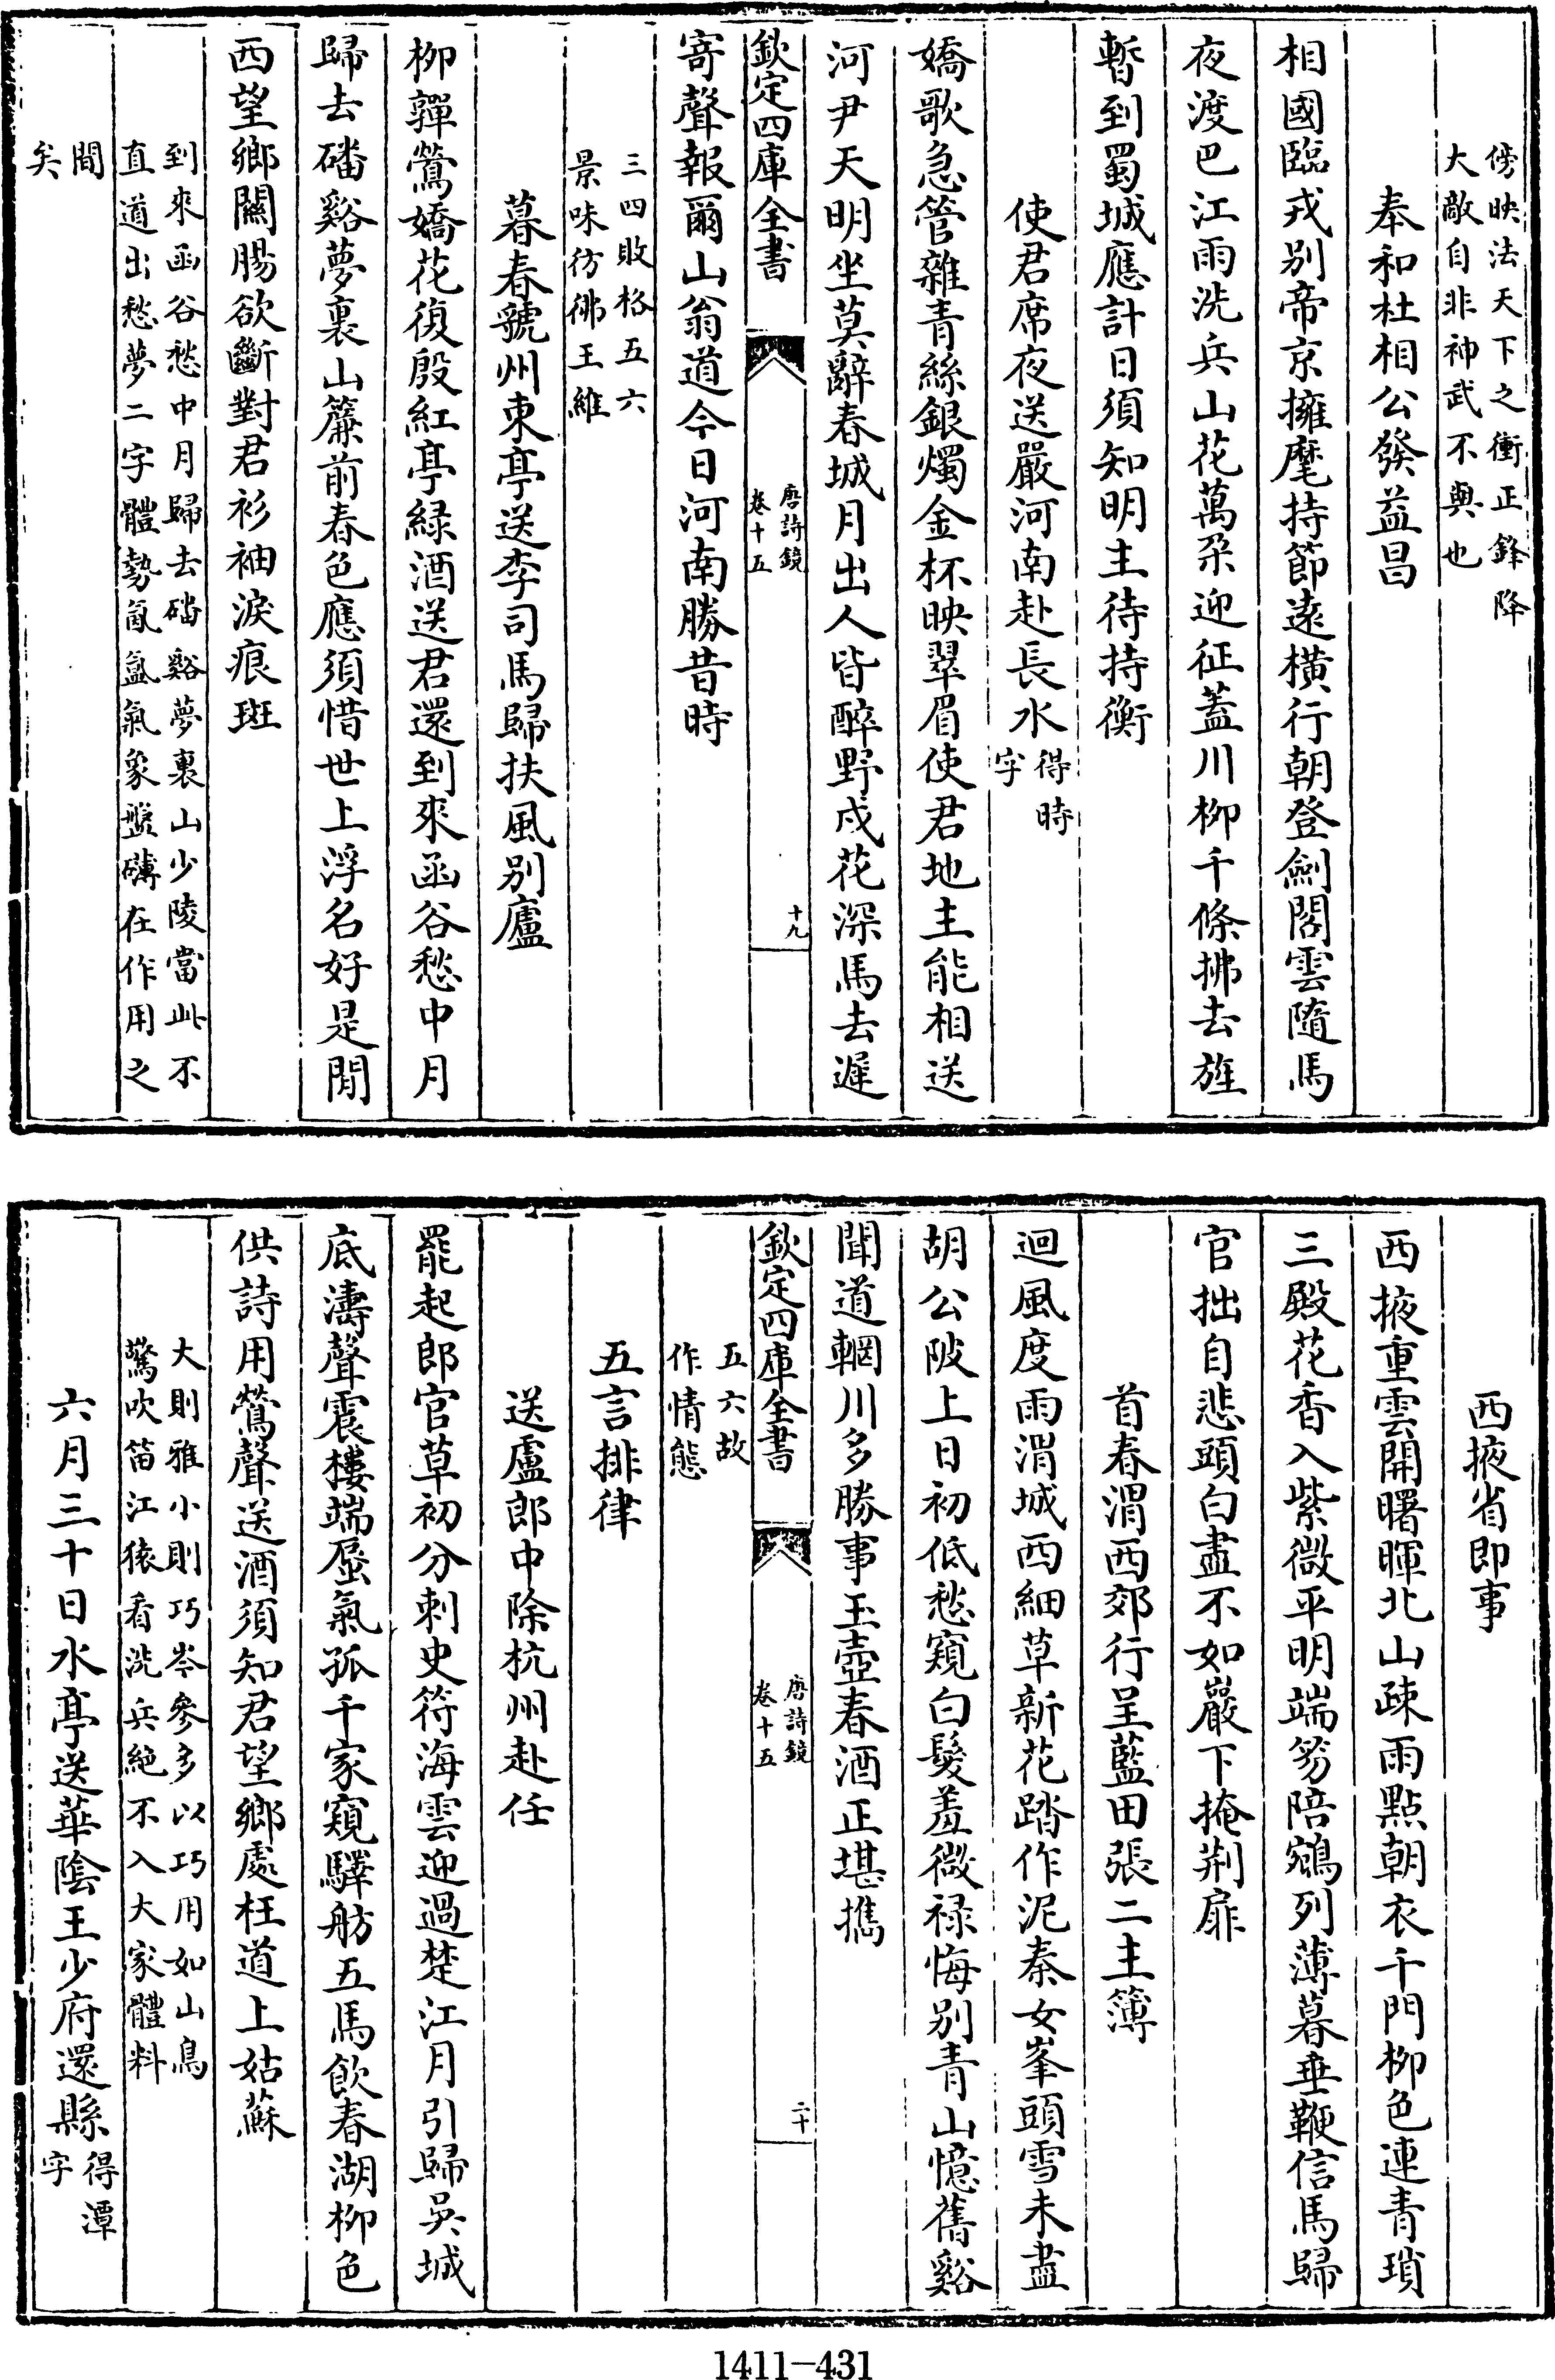 傍映法天下之衝正鋒降
大敵自非神武不與也
奉和杜相公發益昌
相國臨戎别帝京擁麾持節逺横行朝登劍閣雲隨馬
夜渡巴江雨洗兵山花萬朶迎征葢川柳千條拂去旌
暫到蜀城應計日須知明主待持衡
使君席夜送嚴河南赴長水得時
字
嬌歌急管雜青絲銀燭金杯映翠眉使君地主能相送
河尹天明坐莫辭春城月出人皆醉野戍花深馬去遲
欽定四庫全書
唐詩鏡
卷十五
十九
寄聲報爾山翁道今日河南勝昔時
三四敗格五六
景味彷彿王維
暮春虢州東亭送李司馬歸扶風别廬
栁嚲鶯嬌花復殷紅亭緑酒送君還到來函谷愁中月
歸去磻谿夢裏山簾前春色應須惜世上浮名好是閒
西望鄉關腸欲斷對君衫袖淚痕斑
到來函谷愁中月歸去磻谿夢裏山少陵當此不
直道出愁夢二字體勢氤氲氣象盤礴在作用之
間
矣
西掖省即事
西掖重雲開曙暉北山疎雨點朝衣千門栁色連青瑣
三殿花香入紫微平明端笏陪鵷列薄暮垂鞭信馬歸
官拙自悲頭白盡不如巖下掩荆扉
首春渭西郊行呈藍田張二主簿
迴風度雨渭城西細草新花踏作泥秦女峯頭雪未盡
胡公陂上日初低愁窺白髮羞微禄悔别青山憶舊谿
聞道輞川多勝事玉壺春酒正堪擕
欽定四庫全書
唐詩鏡
卷十五
二十
五六故
作情態
五言排律
送盧郎中除杭州赴任
罷起郎官草初分刺史符海雲迎過楚江月引歸吳城
底濤聲震樓端蜃氣孤千家窺驛舫五馬飲春湖栁色
供詩用鶯聲送酒須知君望鄉處枉道上姑蘇
大則雅小則巧岑參多以巧用如山鳥
驚吹笛江猿看洗兵絶不入大家體料
六月三十日水亭送華隂王少府還縣得潭
字
1411-431